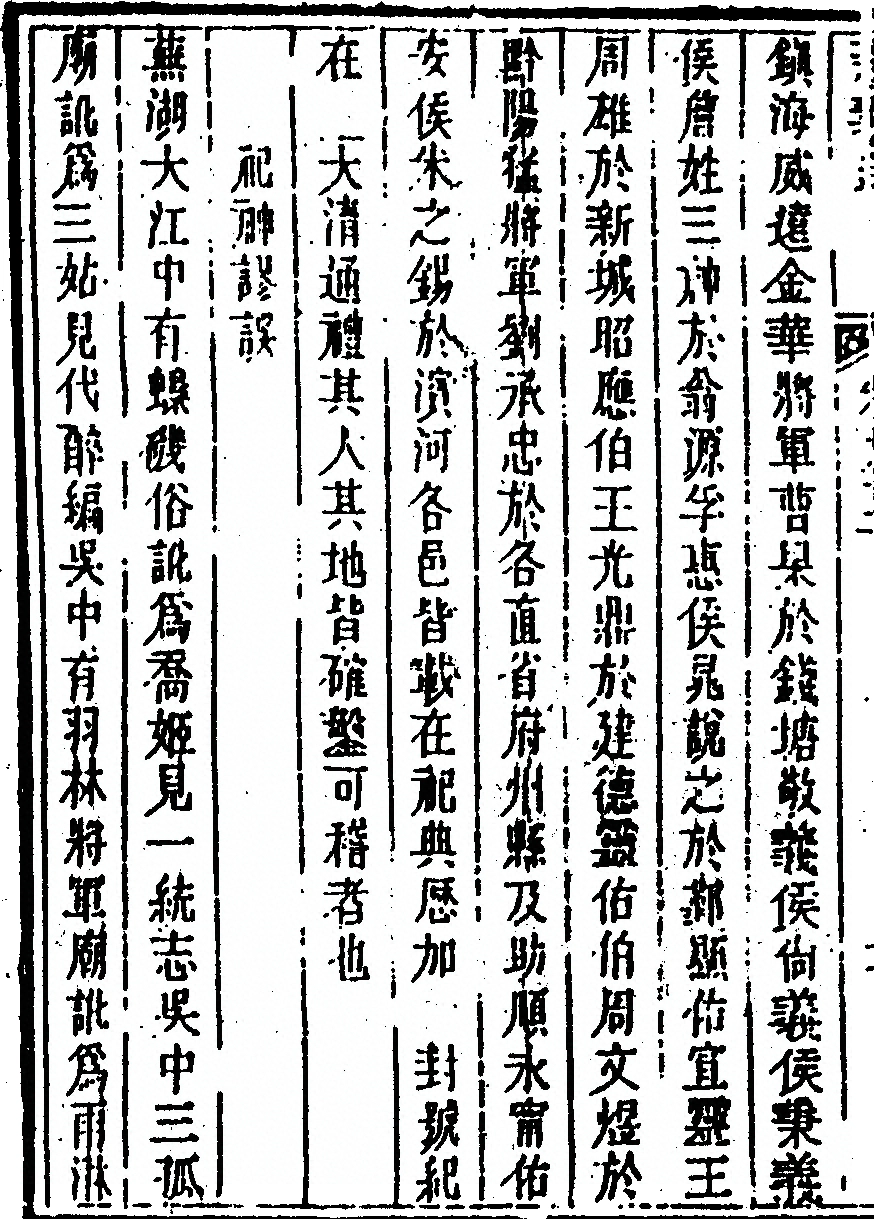 鎮海威遠金華將軍曹杲於錢塘敬義侯尙義侯秉義
侯詹姓三神於翁源孚惠侯晁說之於鄞顯佑宜靈王
周雄於新城昭應伯王光鼎於建德靈佑伯周文煜於
黔陽猛將軍劉承忠於各直省府州縣及助順永甯佑
安侯朱之錫於濱河各邑皆載在祀典歷加 封號紀
在 大清通禮其人其地皆確鑿可稽者也
祀神謬誤
蕪湖大江中有蟂磯俗訛爲喬姬見一統志吳中三孤
廟訛爲三姑兒代醉編吳中有羽林將軍廟訛爲雨淋